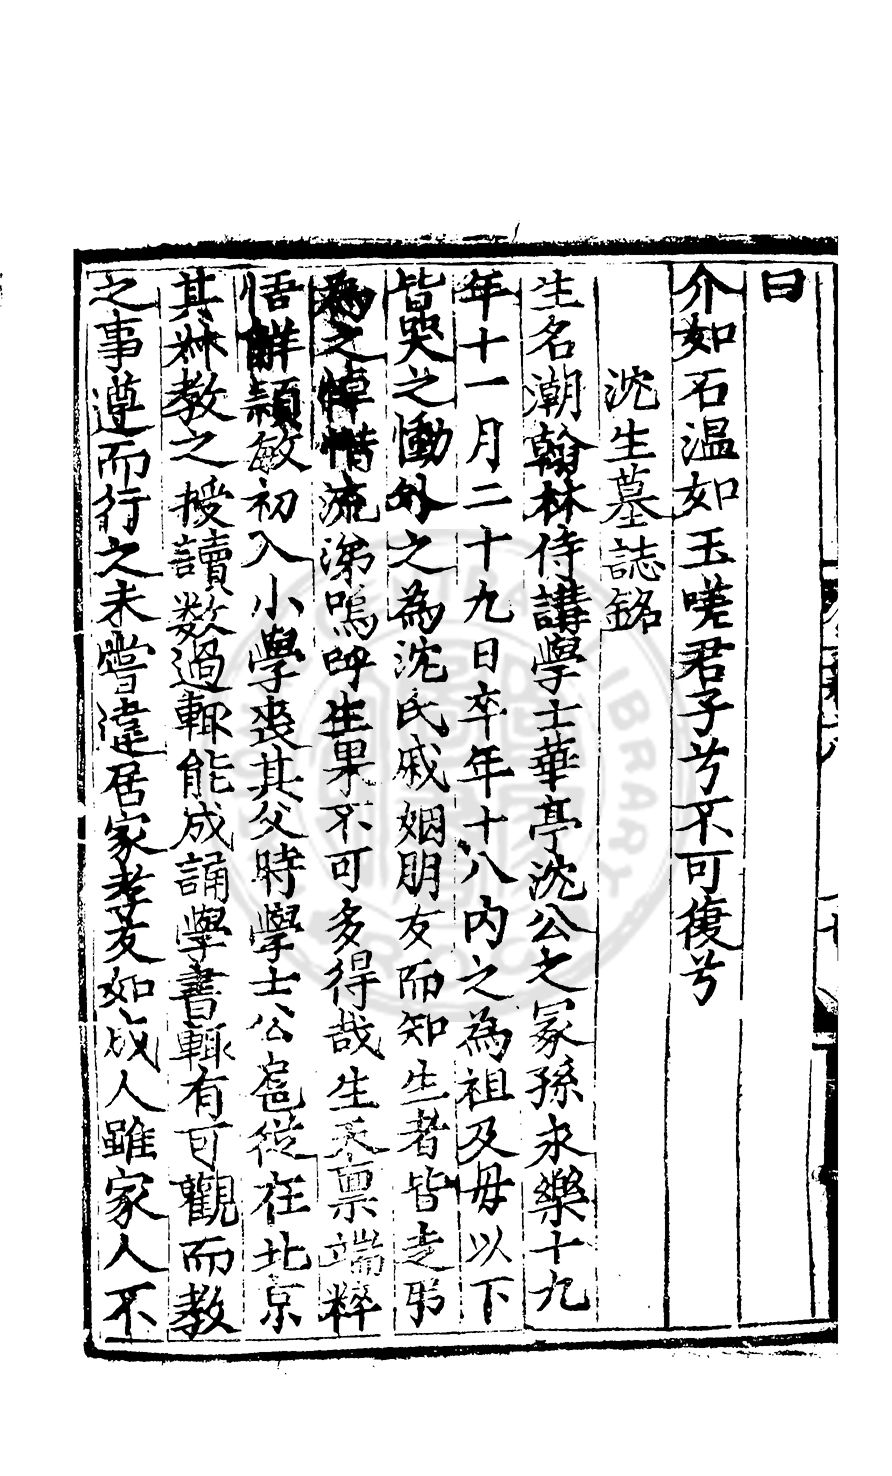 曰
介如石温如玉嗟君子兮不可復兮
沈生墓誌銘
生名潮翰林侍講學士華亭沈公之冢孫永樂十九
年十一月二十九日卒年十八内之為祖及母以下
皆哭之慟外之為沈氏戚姻朋友而知生者皆走弔
為之悼惜流涕嗚呼生果不可多得哉生天禀端粹
悟解穎敏初入小學喪其父時學士公扈從在北京
其叔教之授讀数過輒能成誦學書輒有可觀而教
之事遵而行之未嘗違居家孝友如成人雖家人不